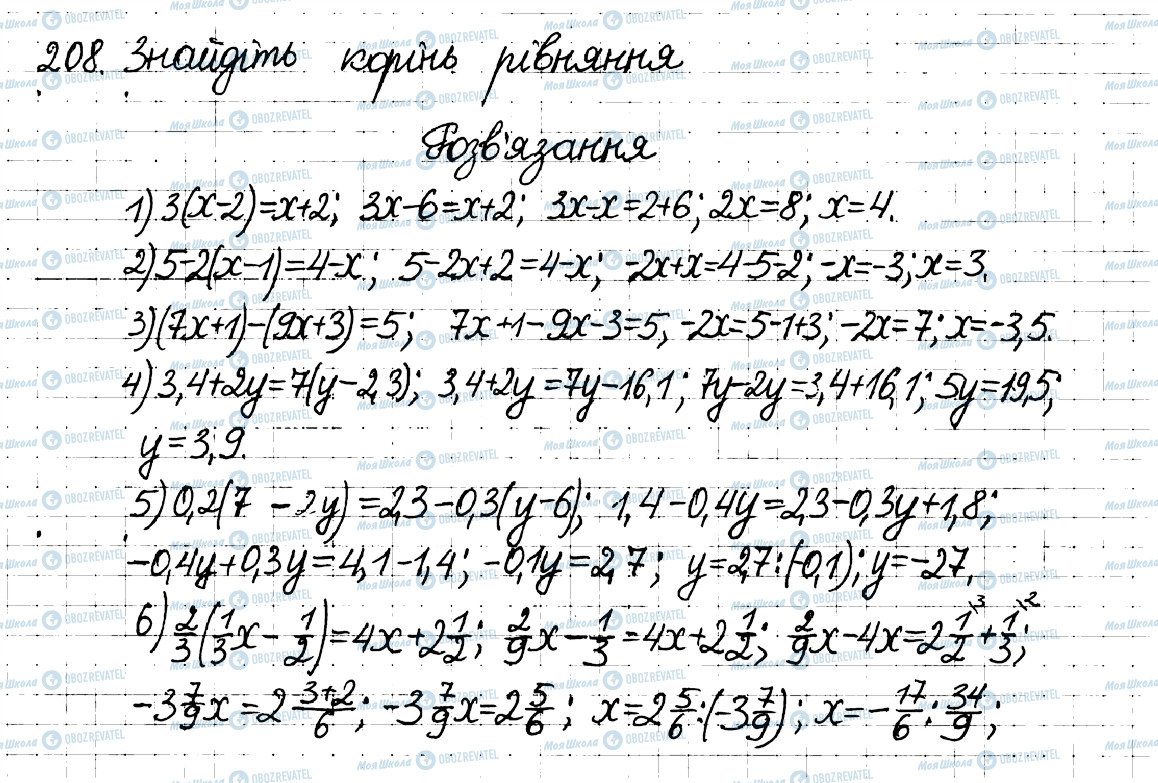 208. Знайдіть корінь рівняння
Розв'язання
1) 3(x-2)=x+2; 3x-6=x+2; 3x-x=2+6; 2x=8; x=4.
2) 5-2(x-1)=4-x; 5-2x+2=4-x; -2x+x=4-5-2; -x=-3; x=3.
3) (7x+1)-(9x+3)=5; 7x+1-9x-3=5, -2x=5-1+3; -2x=7; x=-3,5.
4) 3,4+2y=7(y-2,3); 3,4+2y=7y-16,1; 7y-2y=3,4+16,1; 5y=19,5;
y=3,9.
5) 0,2(7-2y)=2,3-0,3(y-6); 1,4-0,4y=2,3-0,3y+1,8;
-0,4y+0,3y=4,1-1,4; -0,1y=2,7; y=2,7:(-0,1); y=-27.
6) 2/3(1/3x-1/2)=4x+2 1/2; 2/9x-1/3=4x+2 1/2; 2/9x-4x=2 1/2\3+1/3\2;
-3 7/9x=2 3+2/6; -3 7/9x=2 5/6; x=2 5/6:(-3 7/9); x=-17/6:34/9;